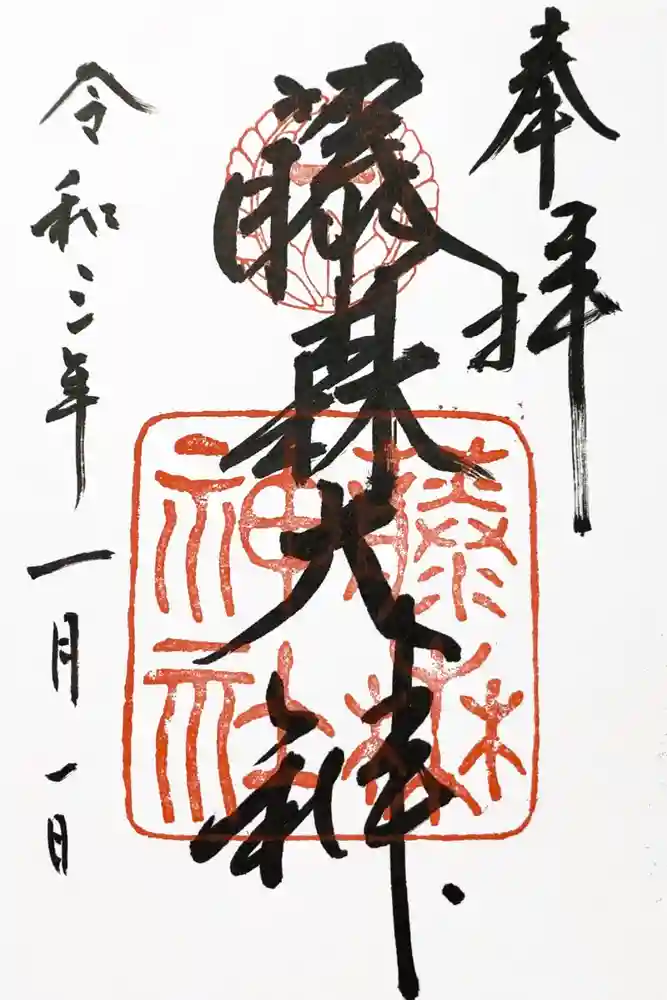 奉拝
藤森大神
藤森
神社
令和三年一月一日